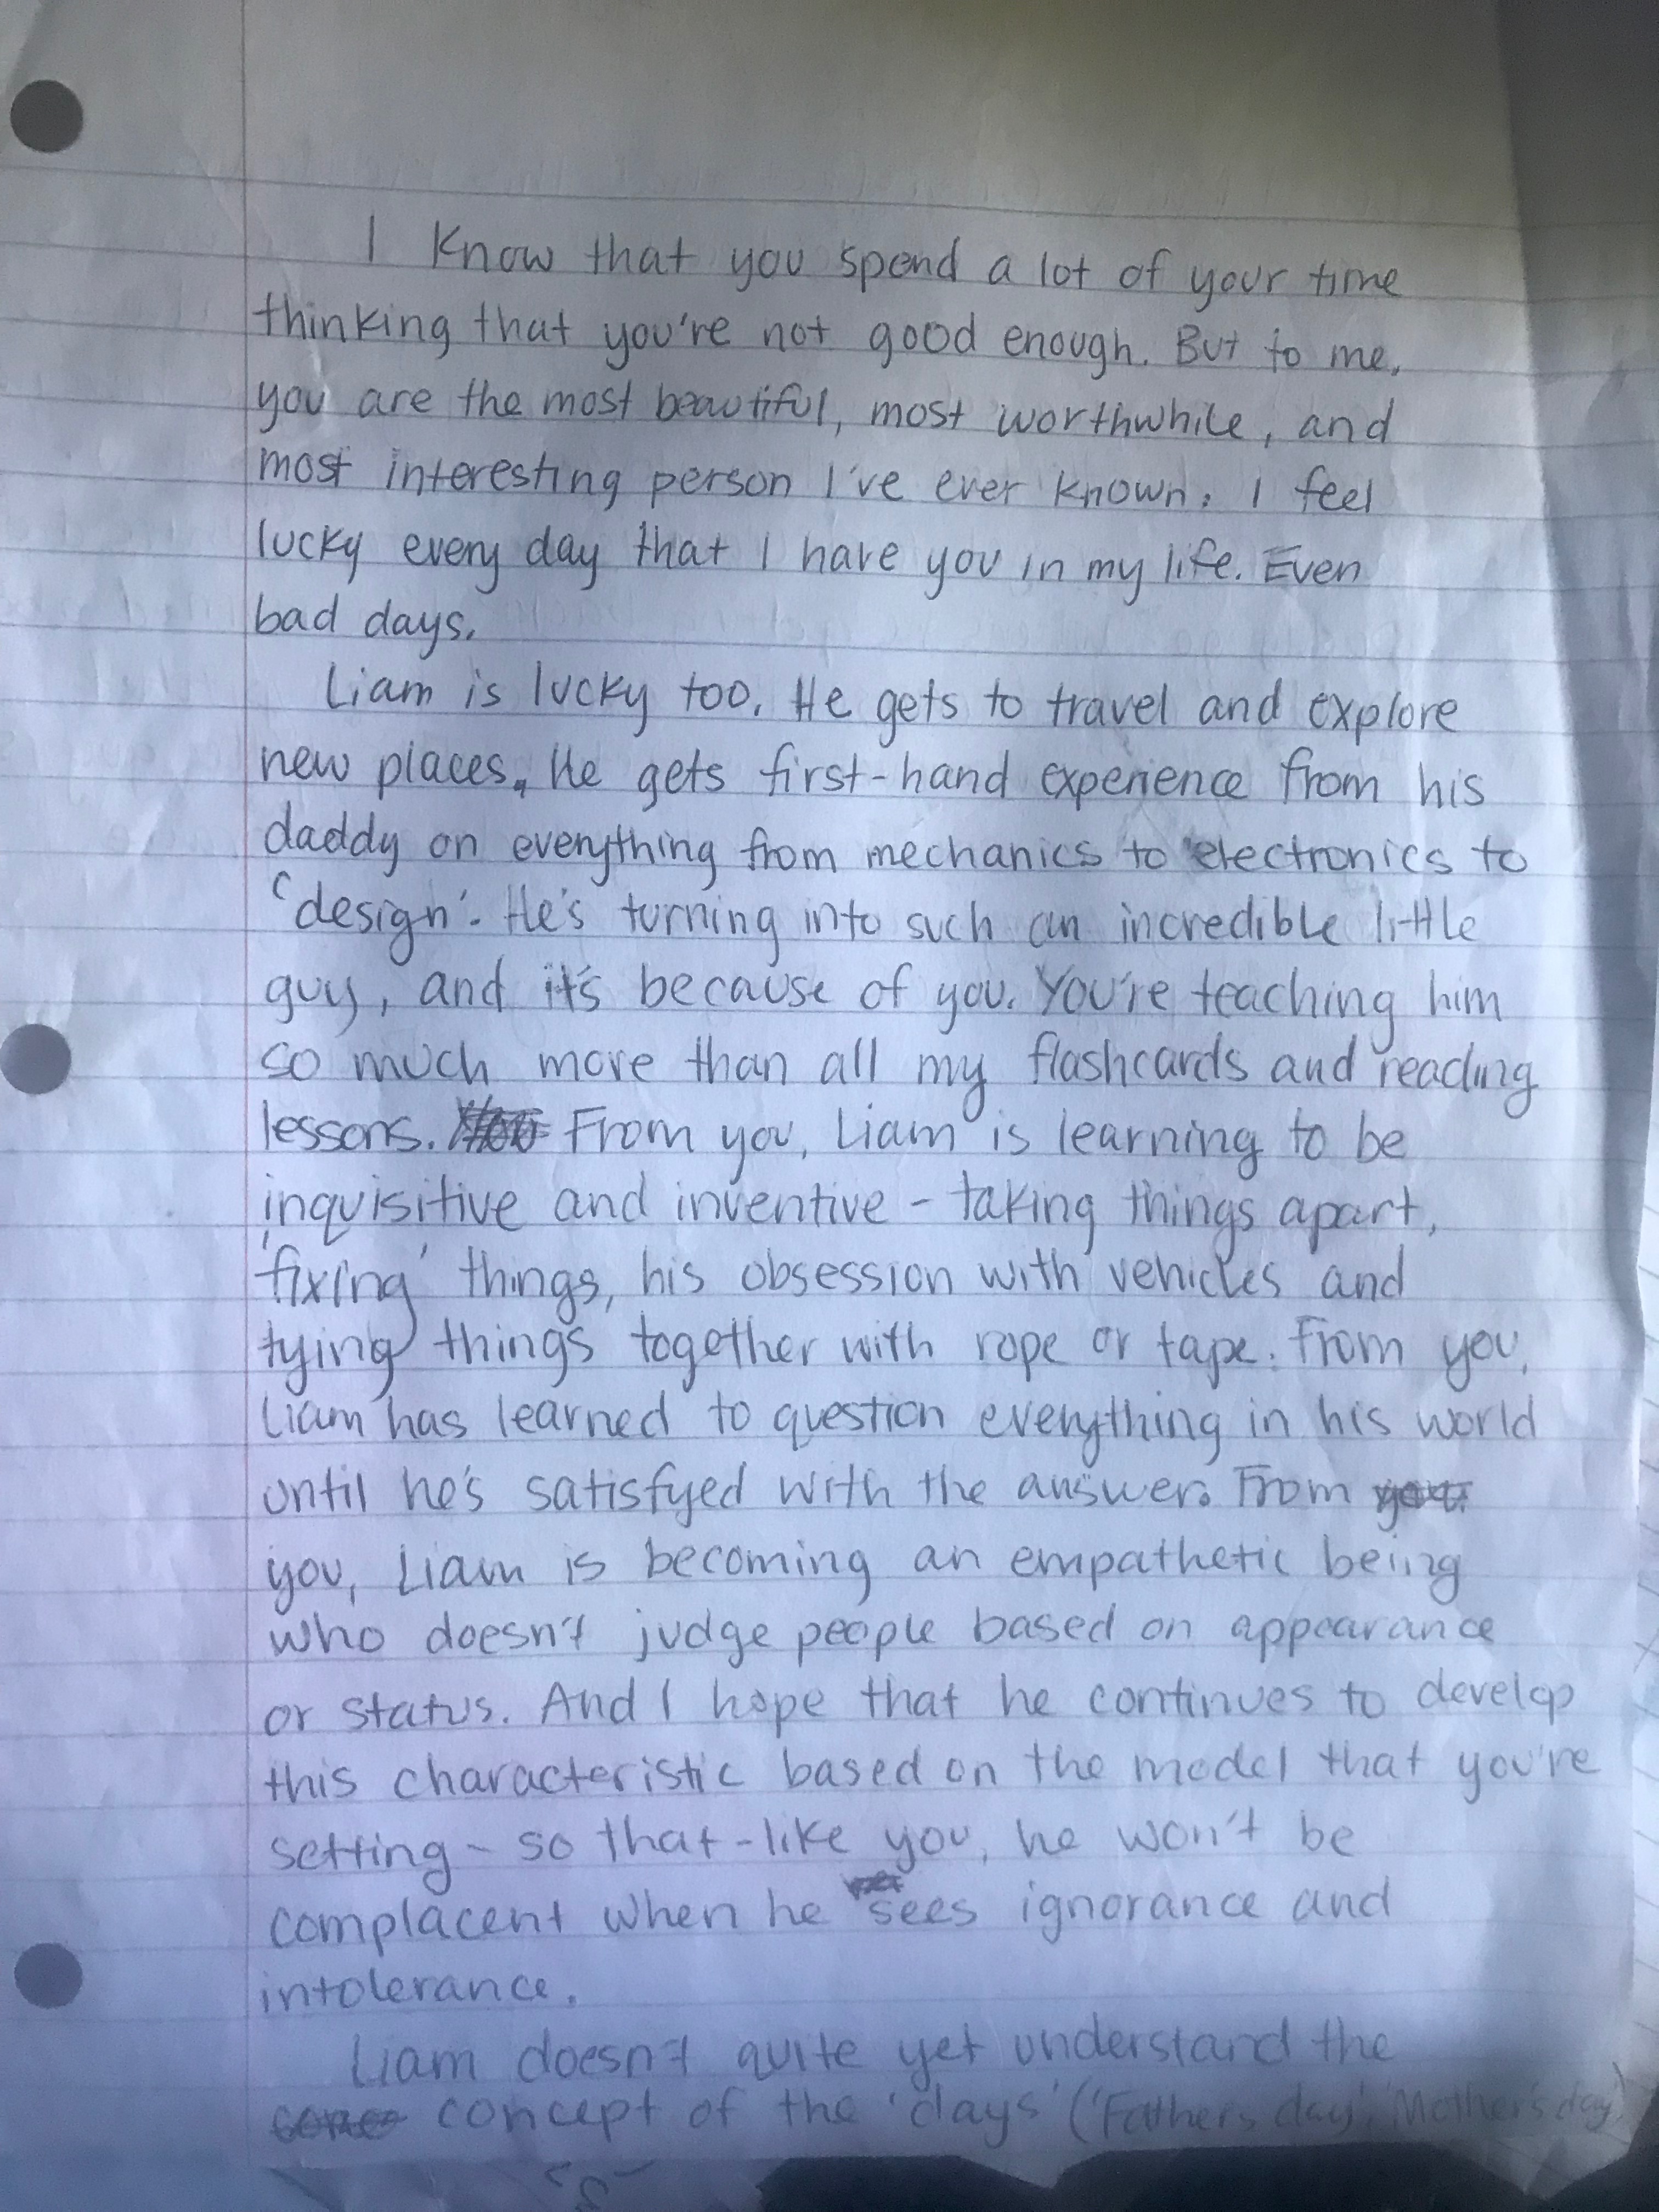 I Know that you spend a lot of your time
thinking that you're not good enough. But to me,
you are the most beautiful, most worthwhile, and
most interesting person I've ever known. I feel
lucky every day that I have you in my life. Even
bad days.
Liam is lucky too. He gets to travel and explore
new places. He gets first-hand experience from his
daddy on everything from mechanics to electronics to
'design'. He's turning into such an incredible little
guy, and it's because of you. You're teaching him
so much more than all my flashcards and reading
lessons. From you, Liam is learning to be
inquisitive and inventive - taking things apart,
'fixing' things, his obsession with vehicles and
tying things together with rope or tape. From you,
Liam has learned to question everything in his world
until he's satisfyed with the answer. From
you, Liam is becoming an empathetic being
who doesn't judge people based on appearance
or status. And I hope that he continues to develop
this characteristic based on the model that you're
setting - so that - like you, he won't be
complacent when he sees ignorance and
intolerance.
Liam doesn't quite yet understand the
concept of the 'days' ('Fathers day', 'Mother's day')